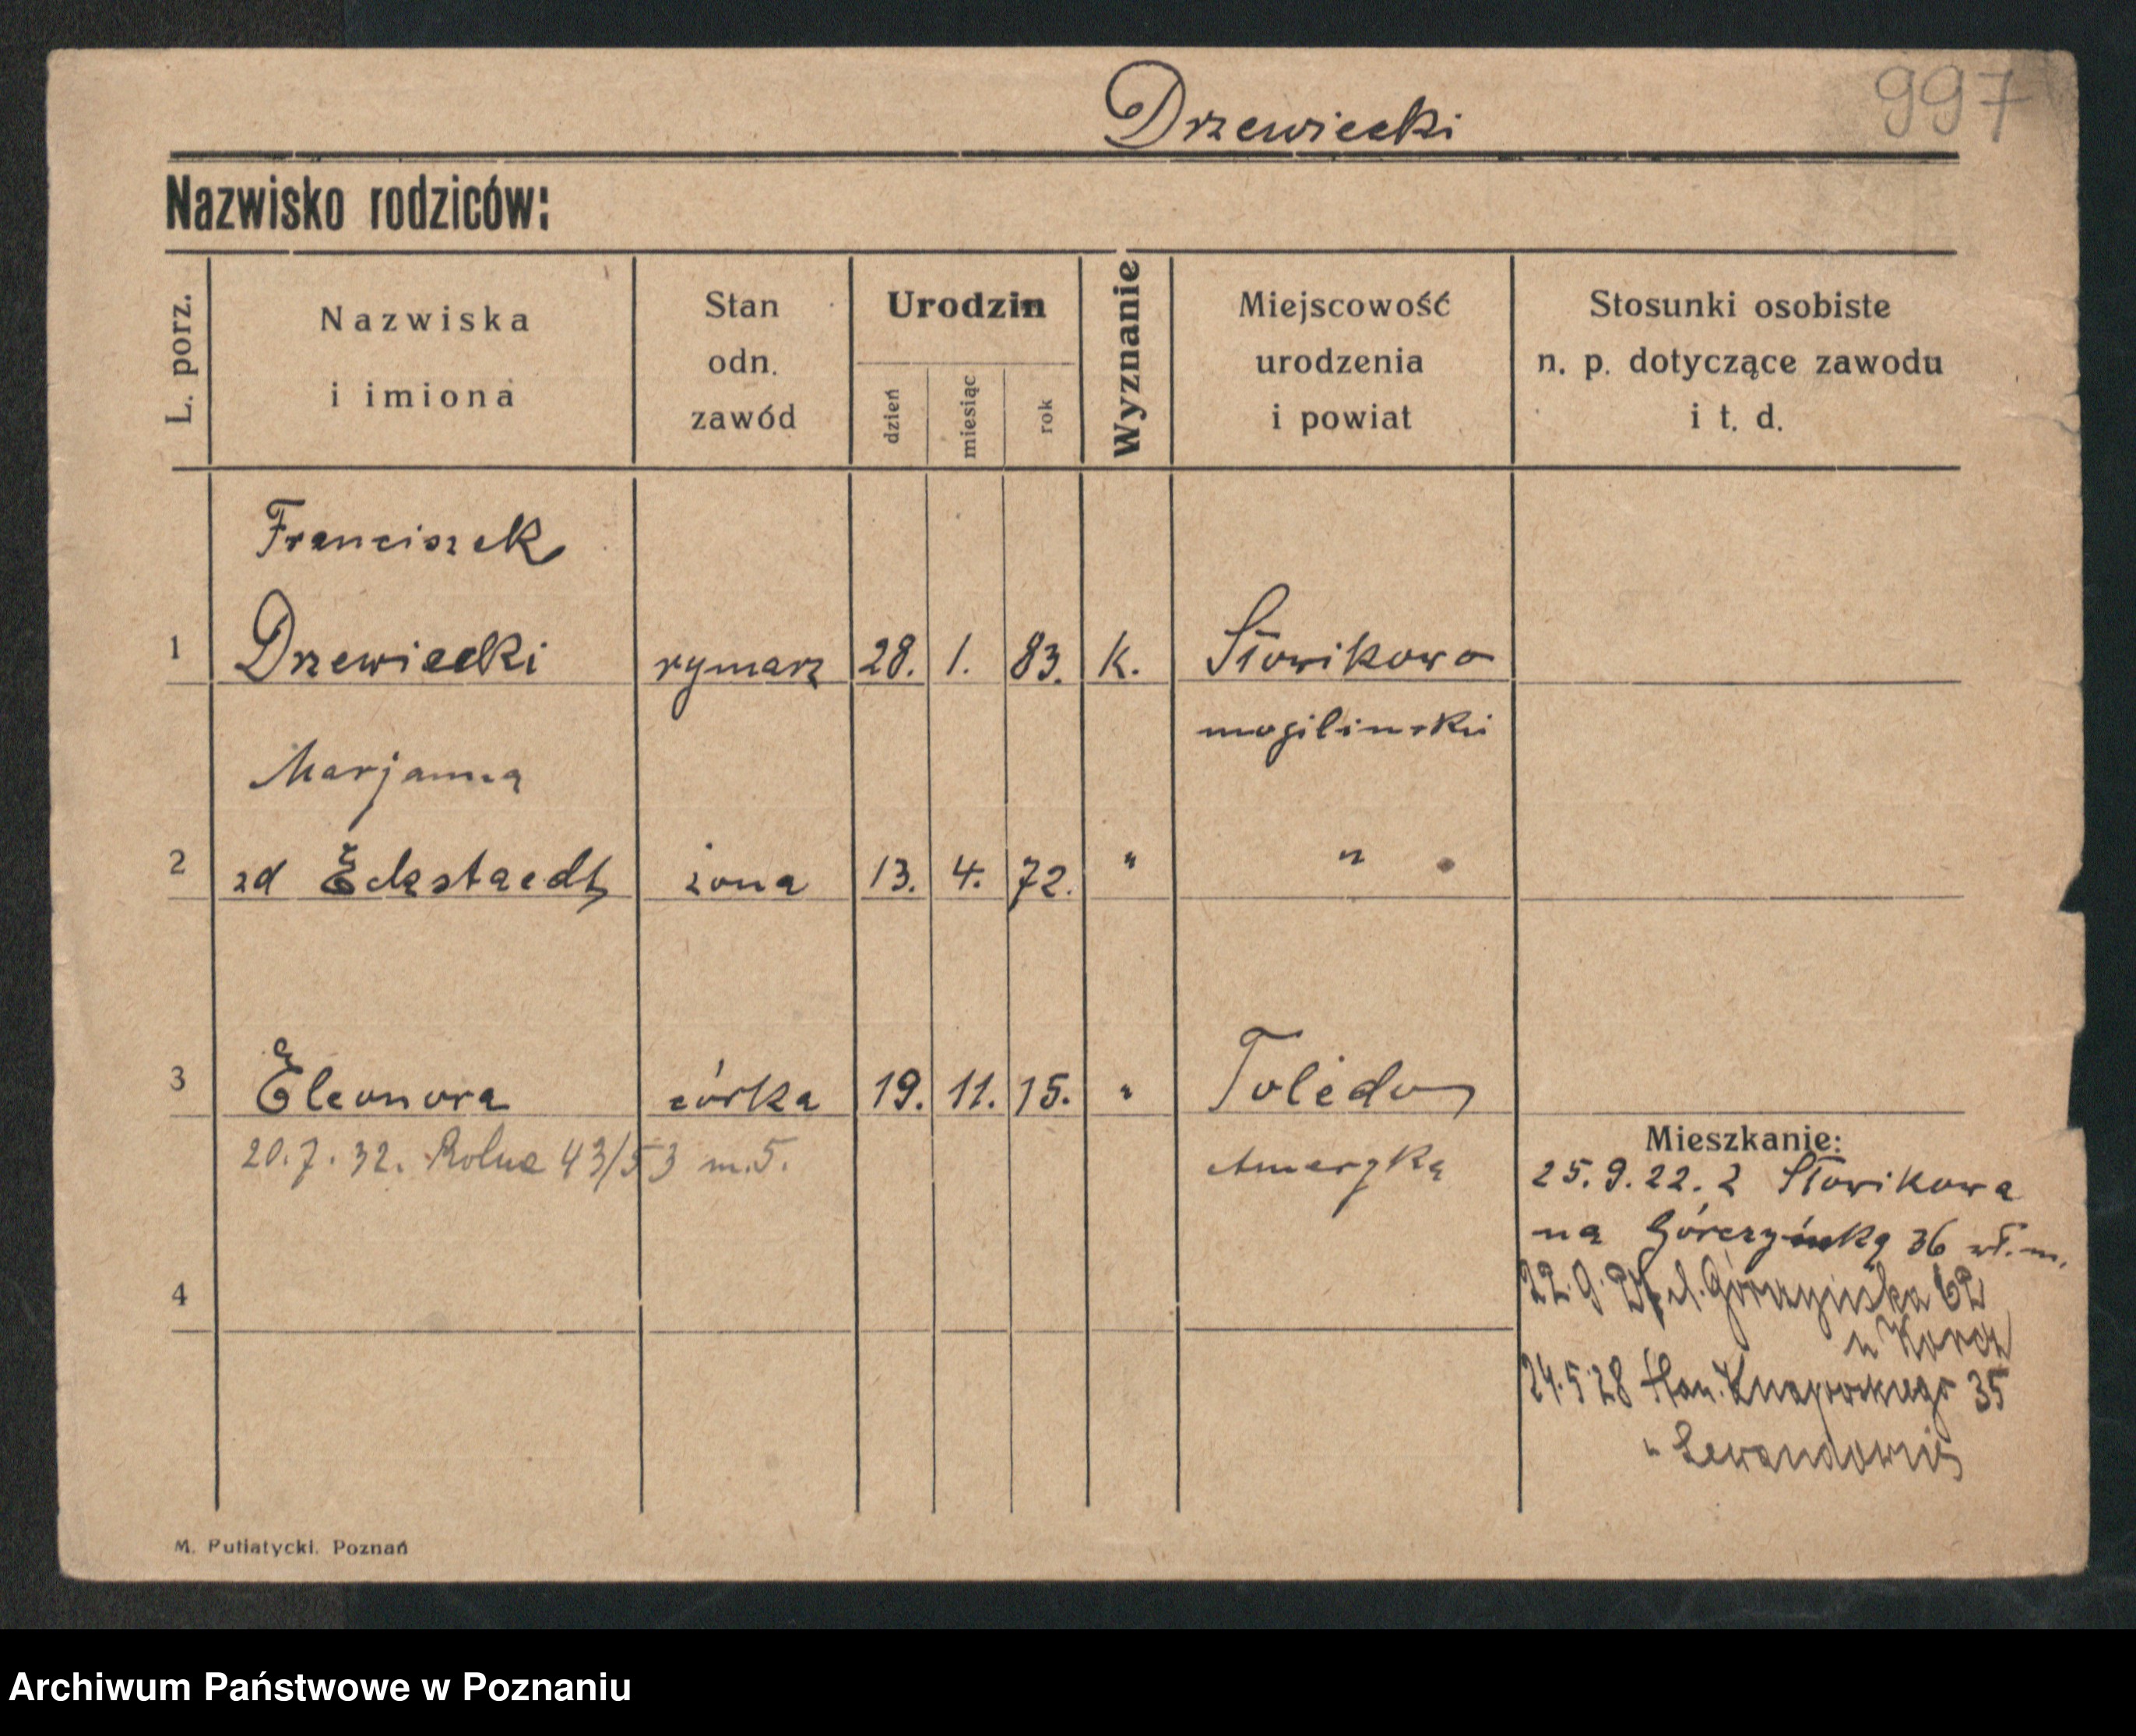 997
Drzewiecki
Nazwisko rodziców:
L. porz.
Nazwiska
i imiona
Stan
odn.
zawód
Urodzin
dzień
miesiąc
rok
Wyznanie
Miejscowość
urodzenia
i powiat
Stosunki osobiste
n. p. dotyczące zawodu
i t. d.
Franciszek
1 Drzewiecki rymarz 28. 1. 83. K. Słowikowo
mogilinski
Marjanna
2 zd Eckstaedt żona 13. 4. 72. " "
3 Eleonora córka 19. 11. 15. " Toledo
20.7.32. Rolna 43/53 m.5. Ameryka
Mieszkanie:
25.9.22. z Słowikowa
na Górczyńską 36 wł. m.
22.9. Górczyńska 62
4
u
24.5.28 Knapowskiego 35
u
M. Putiatycki. Poznań
Archiwum Państwowe w Poznaniu